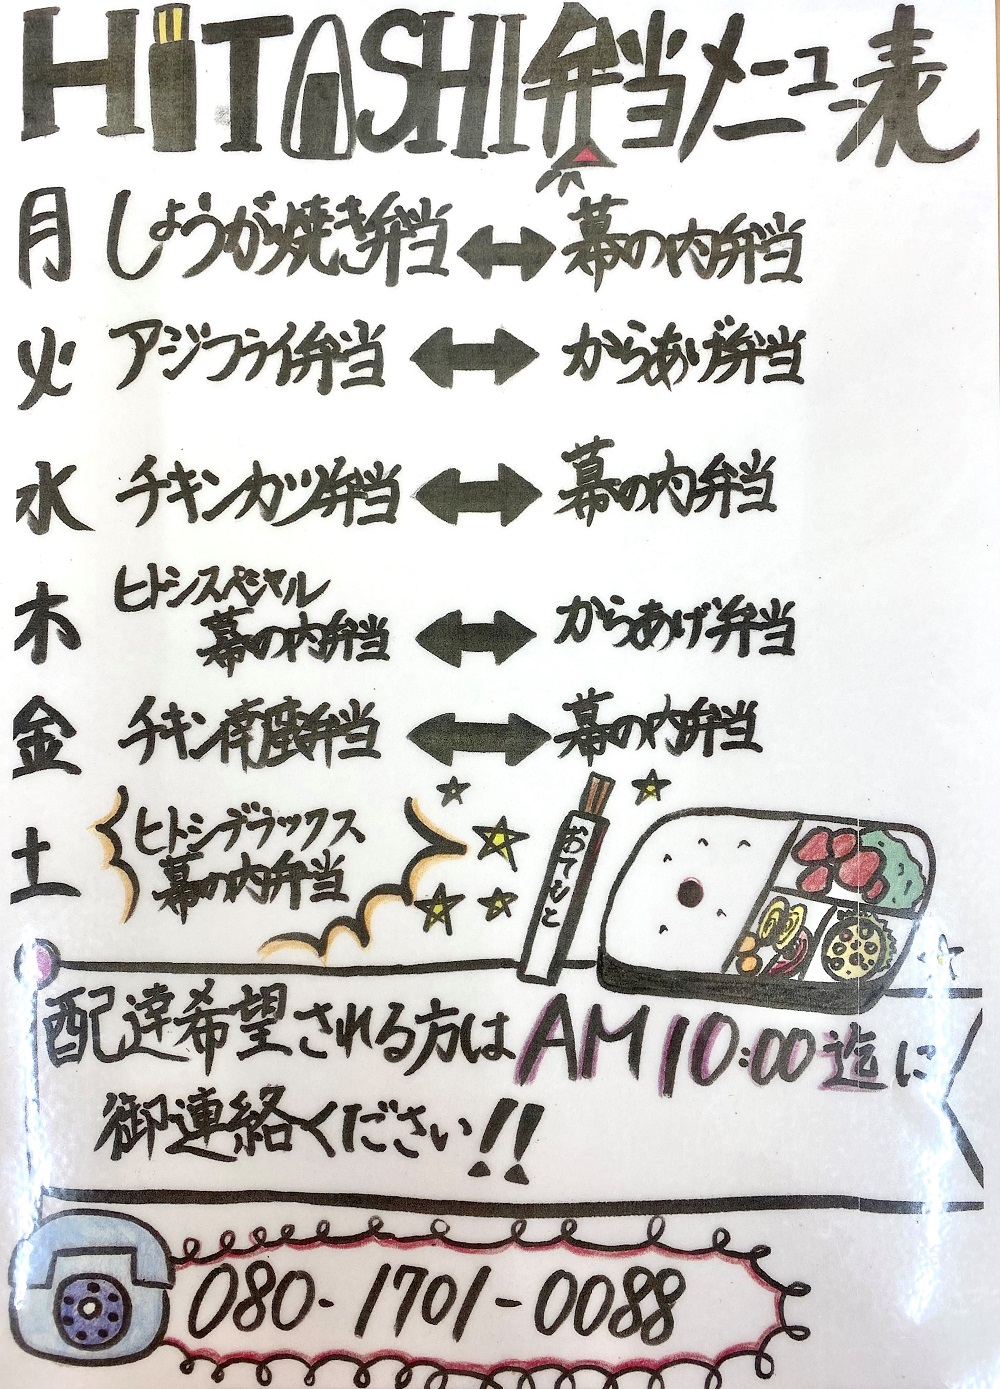 HiTOSHI弁当メニュー表
月 しょうが焼き弁当 ↔ 幕の内弁当
火 アジフライ弁当 ↔ からあげ弁当
水 チキンカツ弁当 ↔ 幕の内弁当
木 ヒトシスペシャル
幕の内弁当 ↔ からあげ弁当
金 チキン南蛮弁当 ↔ 幕の内弁当
土 ヒトシデラックス
幕の内弁当
おてもと
配達希望される方はAM10:00迄に
御連絡ください!!
080-1701-0088